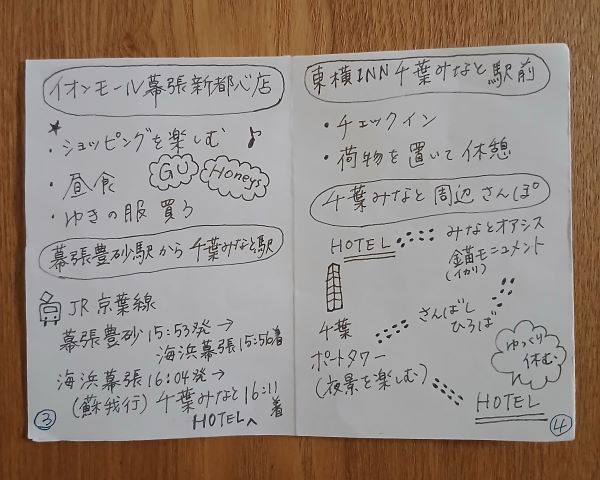 イオンモール幕張新都心店
・ショッピングを楽しむ
・昼食
GU
Honeys
・ゆきの服買う
幕張豊砂駅から千葉みなと駅
JR京葉線
幕張豊砂15:53発→
海浜幕張15:56着
海浜幕張16:04発→
(蘇我行)千葉みなと16:11着
HOTELへ
③
東横INN千葉みなと駅前
・チェックイン
・荷物を置いて休憩
千葉みなと周辺さんぽ
HOTEL
みなとオアシス
錨モニュメント
(イカリ)
さんばし
ひろば
千葉
ポートタワー
(夜景を楽しむ)
ゆっくり
休む
HOTEL
④